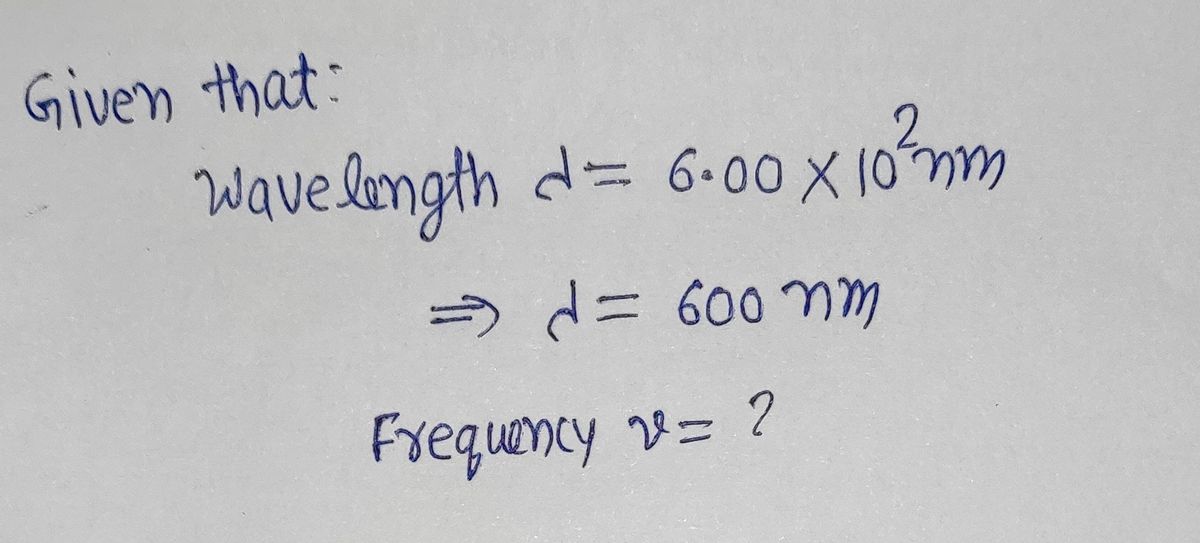 Given that:
Wavelength λ = 6.00 × 10²nm
⇒ λ = 600 nm
Frequency ν = ?